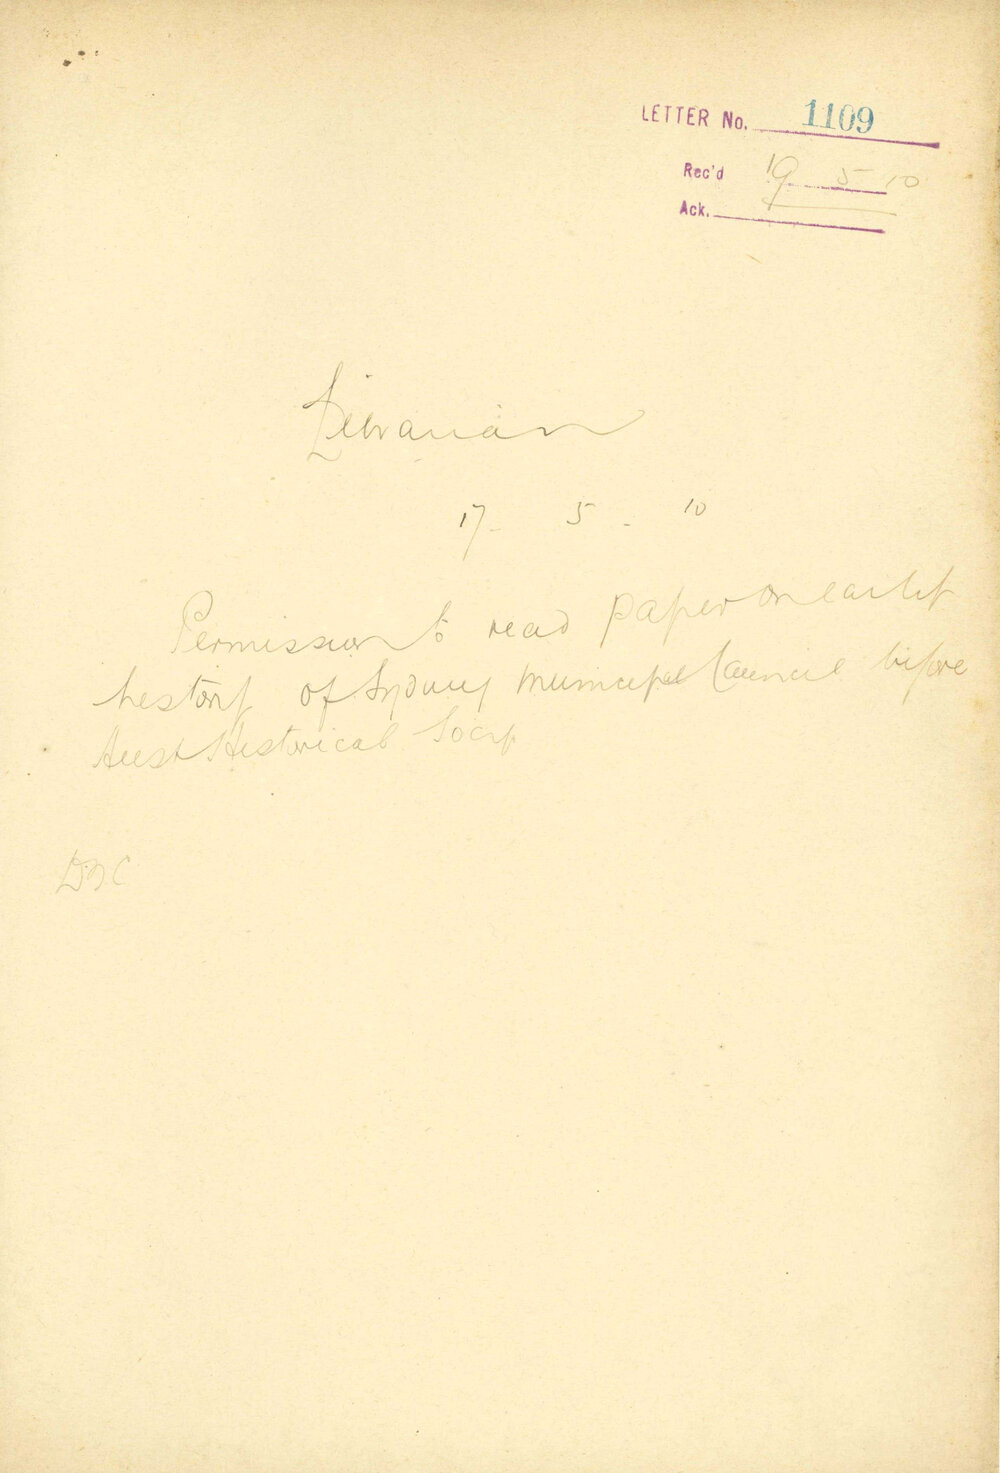 LETTER No. 1109
Rec'd 19 5 10
Ack.
Librarian
17 - 5 - 10
Permission to read paper on early
history of Sydney Municipal Council before
Aust Historical Socy